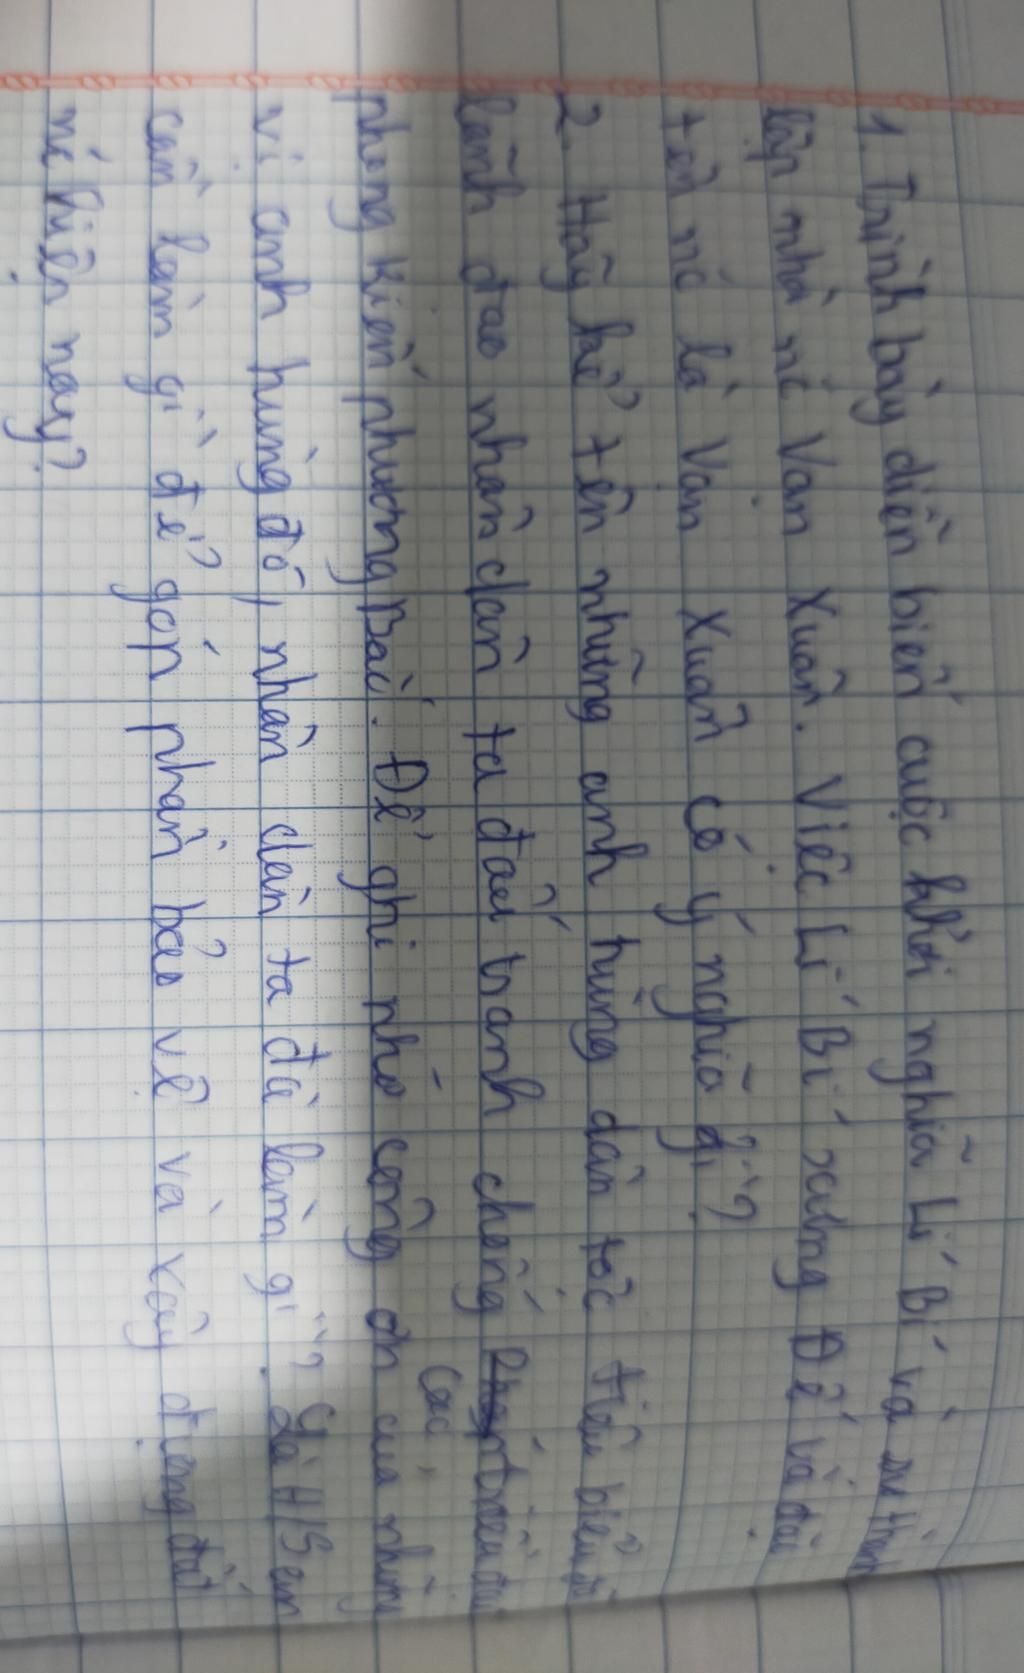 1. Trình bày diễn biến cuộc khởi nghĩa Lí Bí và sự thành
lập nhà nc Vạn Xuân. Việc Lí Bí xưng Đế và đặt
tên nc là Vạn Xuân có ý nghĩa gì?
2. Hãy kể tên những anh hùng dân tộc tiêu biểu đã
lãnh đạo nhân dân ta đấu tranh chống các triều đại
phong kiến phương Bắc. Để ghi nhớ công ơn của những
vị anh hùng đó, nhân dân ta đã làm gì? Là H/S em
cần làm gì để góp phần bảo vệ và xây dựng đất
nc hiện nay?